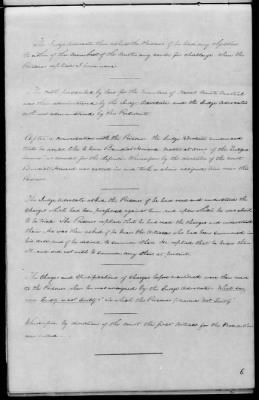 The Judge Advocate then asked the Prisoner if he had any objection
to either of the members of the Court any cause for challenge when the
Prisoner replied I have none
The oath prescribed by law for the members of Court Martial
was then administered by the Judge Advocate and the Judge Advocate
oath was administered by the President
After a conversation with the Prisoner the Judge Advocate announced
that he would like to have
as counsel for the defence Whereupon by the direction of the court
was and took a chair assigned him near the
Prisoner
The Judge Advocate asked the Prisoner if he had seen and understood the
Charges which had been preferred against him and upon which he was about
to be tried The Prisoner replied that he had seen the charges and understood
them He was then asked if he knew the witnesses who had been summoned in
his and if he desired to summon others He replied that he knew them
all and did not wish to summon any others at present
The Charge and the specifications of charges before mentioned were then read
to the Prisoner when he was arraigned by the Judge Advocate What say
you Guilty or not Guilty to which the Prisoner pleaded Not Guilty
Whereupon by direction of the court the first witness for the Prosecution
was called
6